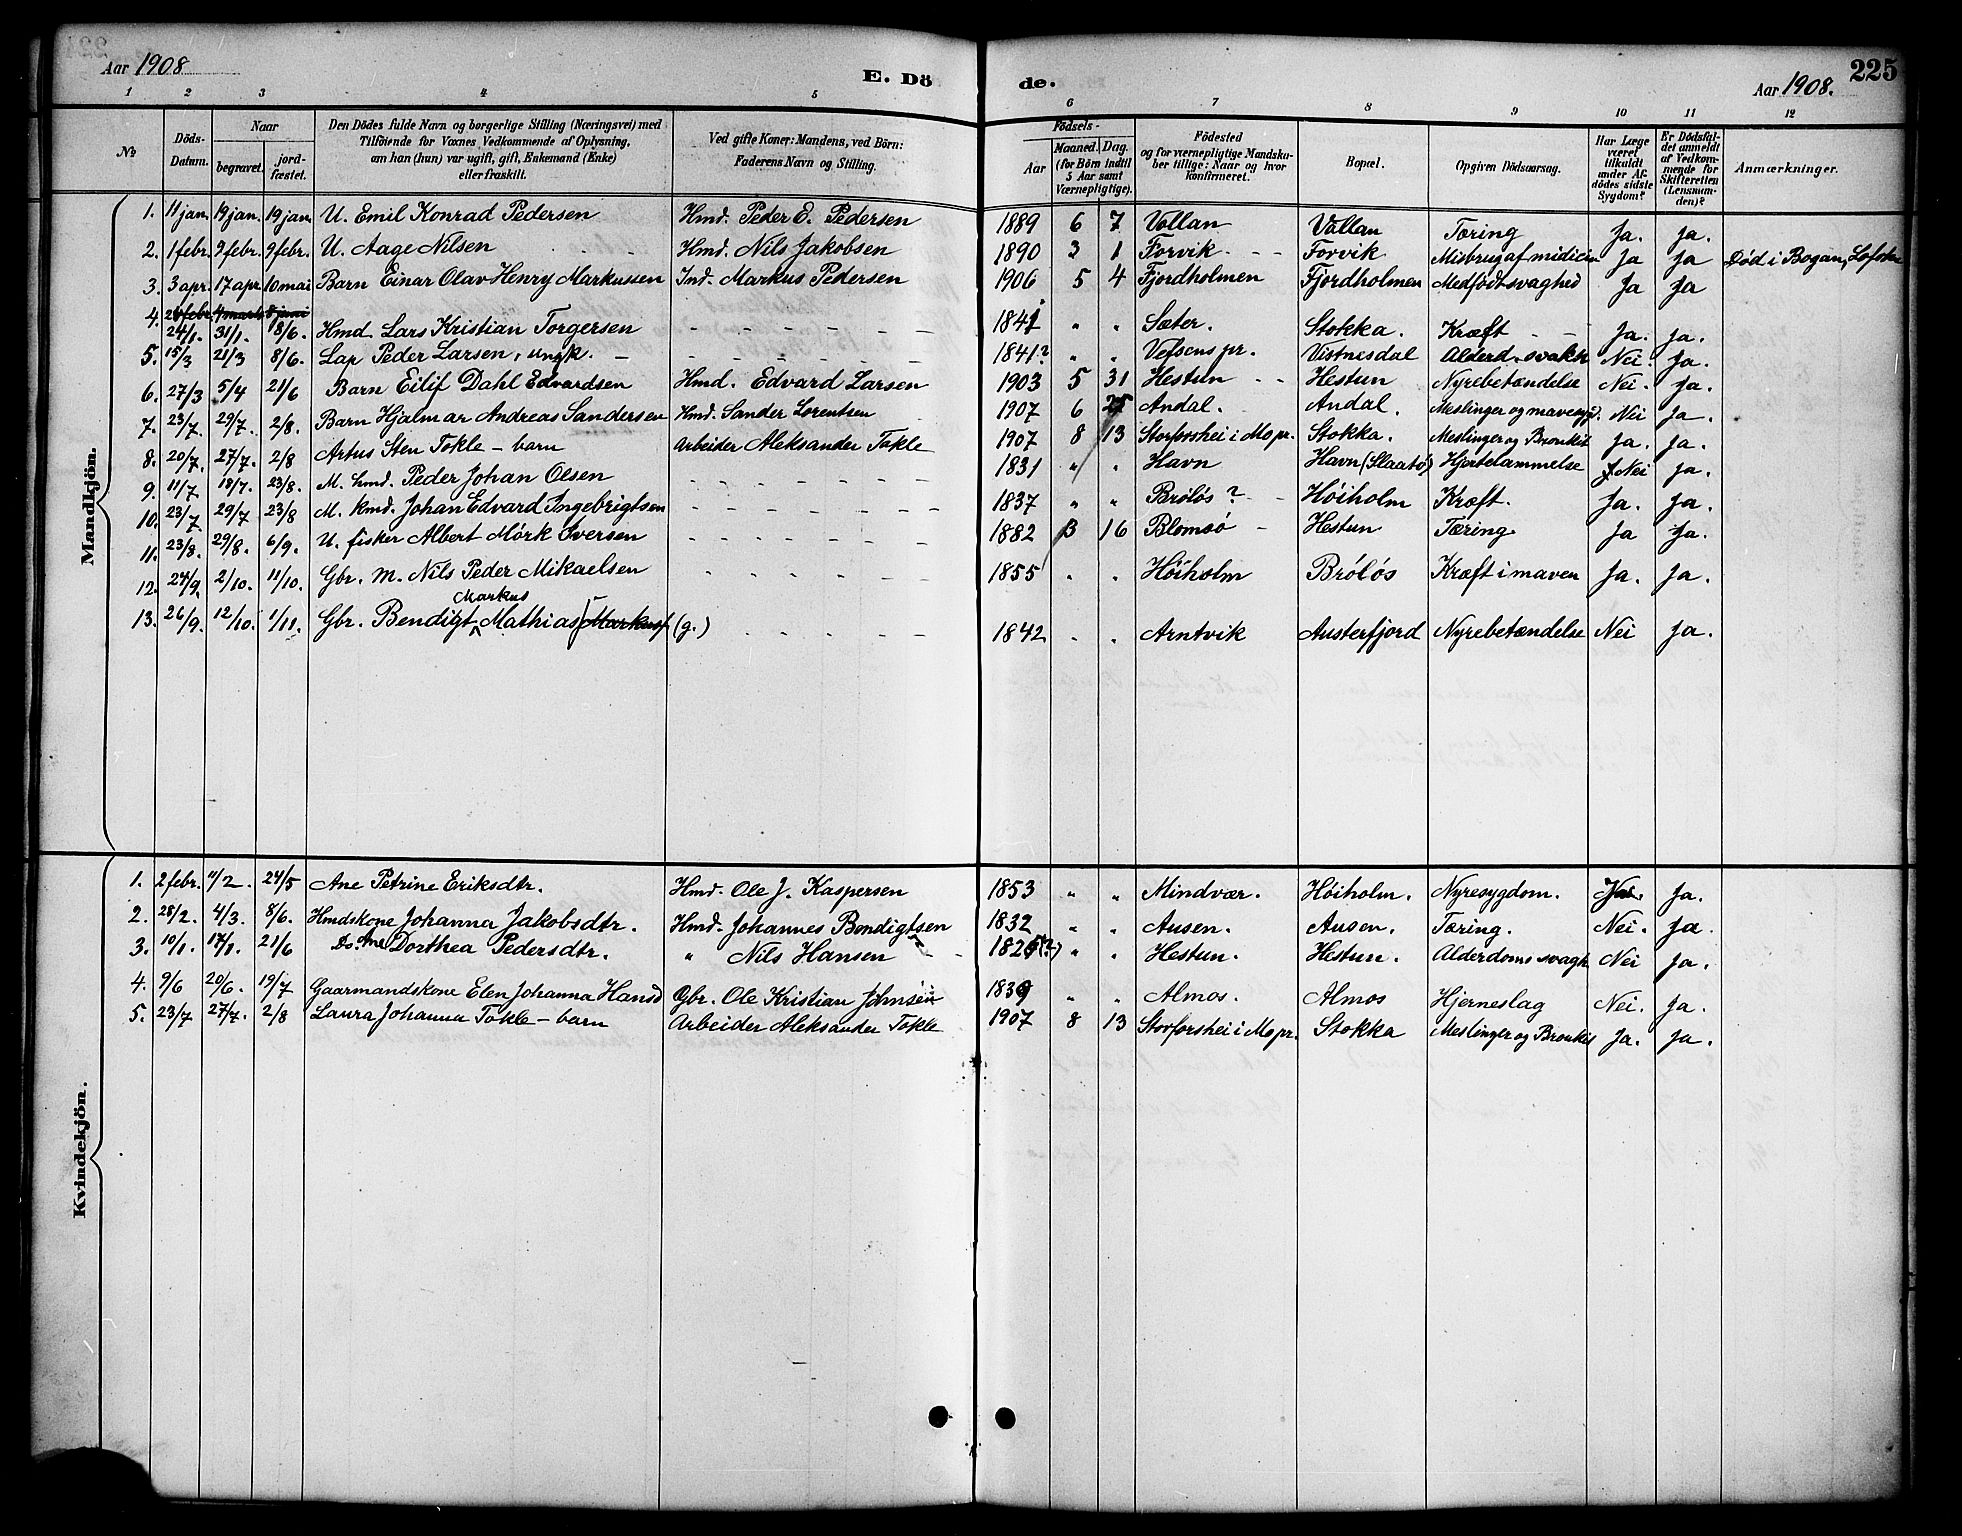 Aar 1908 E. Dö
de. Aar 1908. 225
1 2 3 4 5 6 7 8 9 10 11 12
№ Döds-Datum. Naar begravet. jordfæstet. Den Dödes fulde Navn og borgerlige Stilling (Næringsvei) med Tilföiende for Voxnes Vedkommende af Oplysning, om han (hun) var ugift, gift, Enkemand (Enke) eller fraskilt. Ved gifte Koner: Mandens, ved Börn: Faderens Navn og Stilling. Födsels- Aar Maaned. Dag. (for Börn indtil 5 Aar samt Værnepligtige). Födested og for værnepligtige Mandskaber tillige: Naar og hvor konfirmeret. Bopæl. Opgiven Dödsaarsag. Har Læge været tilkaldt under Afdödes sidste Sygdom? Er Dödsfaldet anmeldt af Vedkommende for Skifteretten (Lensmanden)? Anmærkninger.
Mandkjön.
1. 11 jan. 19 jan. 19 jan. U. Emil Konrad Pedersen Hmd. Peder E. Pedersen 1889 6 7 Vollan Vollan Tæring Ja. Ja.
2. 1 febr. 9 febr. 9 febr. U. Aage Nilsen Hmd. Nils Jakobsen 1890 3 1 Forvik Forvik Misbrug af midicin Ja Ja Död i Bogan, Lofoten
3. 3 apr. 17 apr. 10 mai Barn Einar Olav Henry Markussen Ind. Markus Pedersen 1906 5 4 Fjordholmen Fjordholmen Medfödt svaghed Ja Ja
4. 24/1. 31/1. 18/6. Hmd. Lars Kristian Torgersen 1841 " " Sæter. Stokka. Kræft Ja. Ja.
5. 15/3 21/3 8/6. Lap Peder Larsen, ungk. 1841? " " Vefsens pr. Vistnesdal Alderd. svakh Nei. Ja.
6. 27/3 5/4 21/6 Barn Eilif Dahl Edvardsen Hmd. Edvard Larsen 1903 5 31 Hestun Hestun Nyrebetændelse Nei. Ja.
7. 23/7. 29/7. 2/8. Barn Hjalmar Andreas Sandersen Hmd. Sander Lorentsen 1907 6 25 Andal. Andal. Meslinger og mavesygd. Nei Ja.
8. 20/7. 27/7. 2/8 Artus Sten Tokle - barn Arbeider Aleksander Tokle 1907 8 13 Storforshei i Mo pr. Stokka. Meslinger og Bronkit Ja. Ja.
9. 11/7 18/7. 23/8. M. hmd. Peder Johan Olsen 1831 " " Havn Havn (Slaatö) Hjertelammelse Nei Ja.
10. 23/7. 29/7 23/8 M. kmd. Johan Edvard Ingebrigtsen 1837 " " Brölös? Höiholm Kræft. Ja. Ja.
11. 23/8. 29/8. 6/9. U. fisker Albert Mörk Iversen 1882 3 16 Blomsö Hestun Tæring Ja Ja.
12. 24/9. 2/10. 11/10. Gbr. M. Nils Peder Mikaelsen 1855 " " Höiholm Brölös Kræft i maven Ja. Ja.
Markus
13. 26/9. 12/10. 1/11. Gbr. Bendigt Mathias Markus (g.) 1842 " " Arntvik Austerfjord Nyrebetændelse Nei Ja.
Kvindekjön.
1. 2 febr. 11/2. 24/5 Ane Petrine Eriksdtr. Hmd. Ole J. Kaspersen 1853 " " Mindvær. Höiholm. Nyresygdom. Ja.
2. 28/2. 4/3. 8/6. Hmdskone Johanna Jakobsdtr. Hmd. Johannes Bendigtsen 1832 " " Ausen. Ausen. Tæring. Nei. Ja.
3. 10/1. 17/1. 21/6 Do. Ane Dorthea Pedersdtr. " Nils Hansen 1825(?) " " Hestun. Hestun. Alderdoms svagh Nei Ja.
4. 9/6 20/6. 19/7 Gaarmandskone Elen Johanna Hansd Gbr. Ole Kristian Johnsen 1839 " " Almos. Almos Hjerneslag Nei. Ja.
5. 23/7 27/7. 2/8 Laura Johanna Tokle - barn Arbeider Aleksander Tokle 1907 8 13 Storforshei i Mo pr. Stokka Meslinger og Bronkit Ja. Ja.